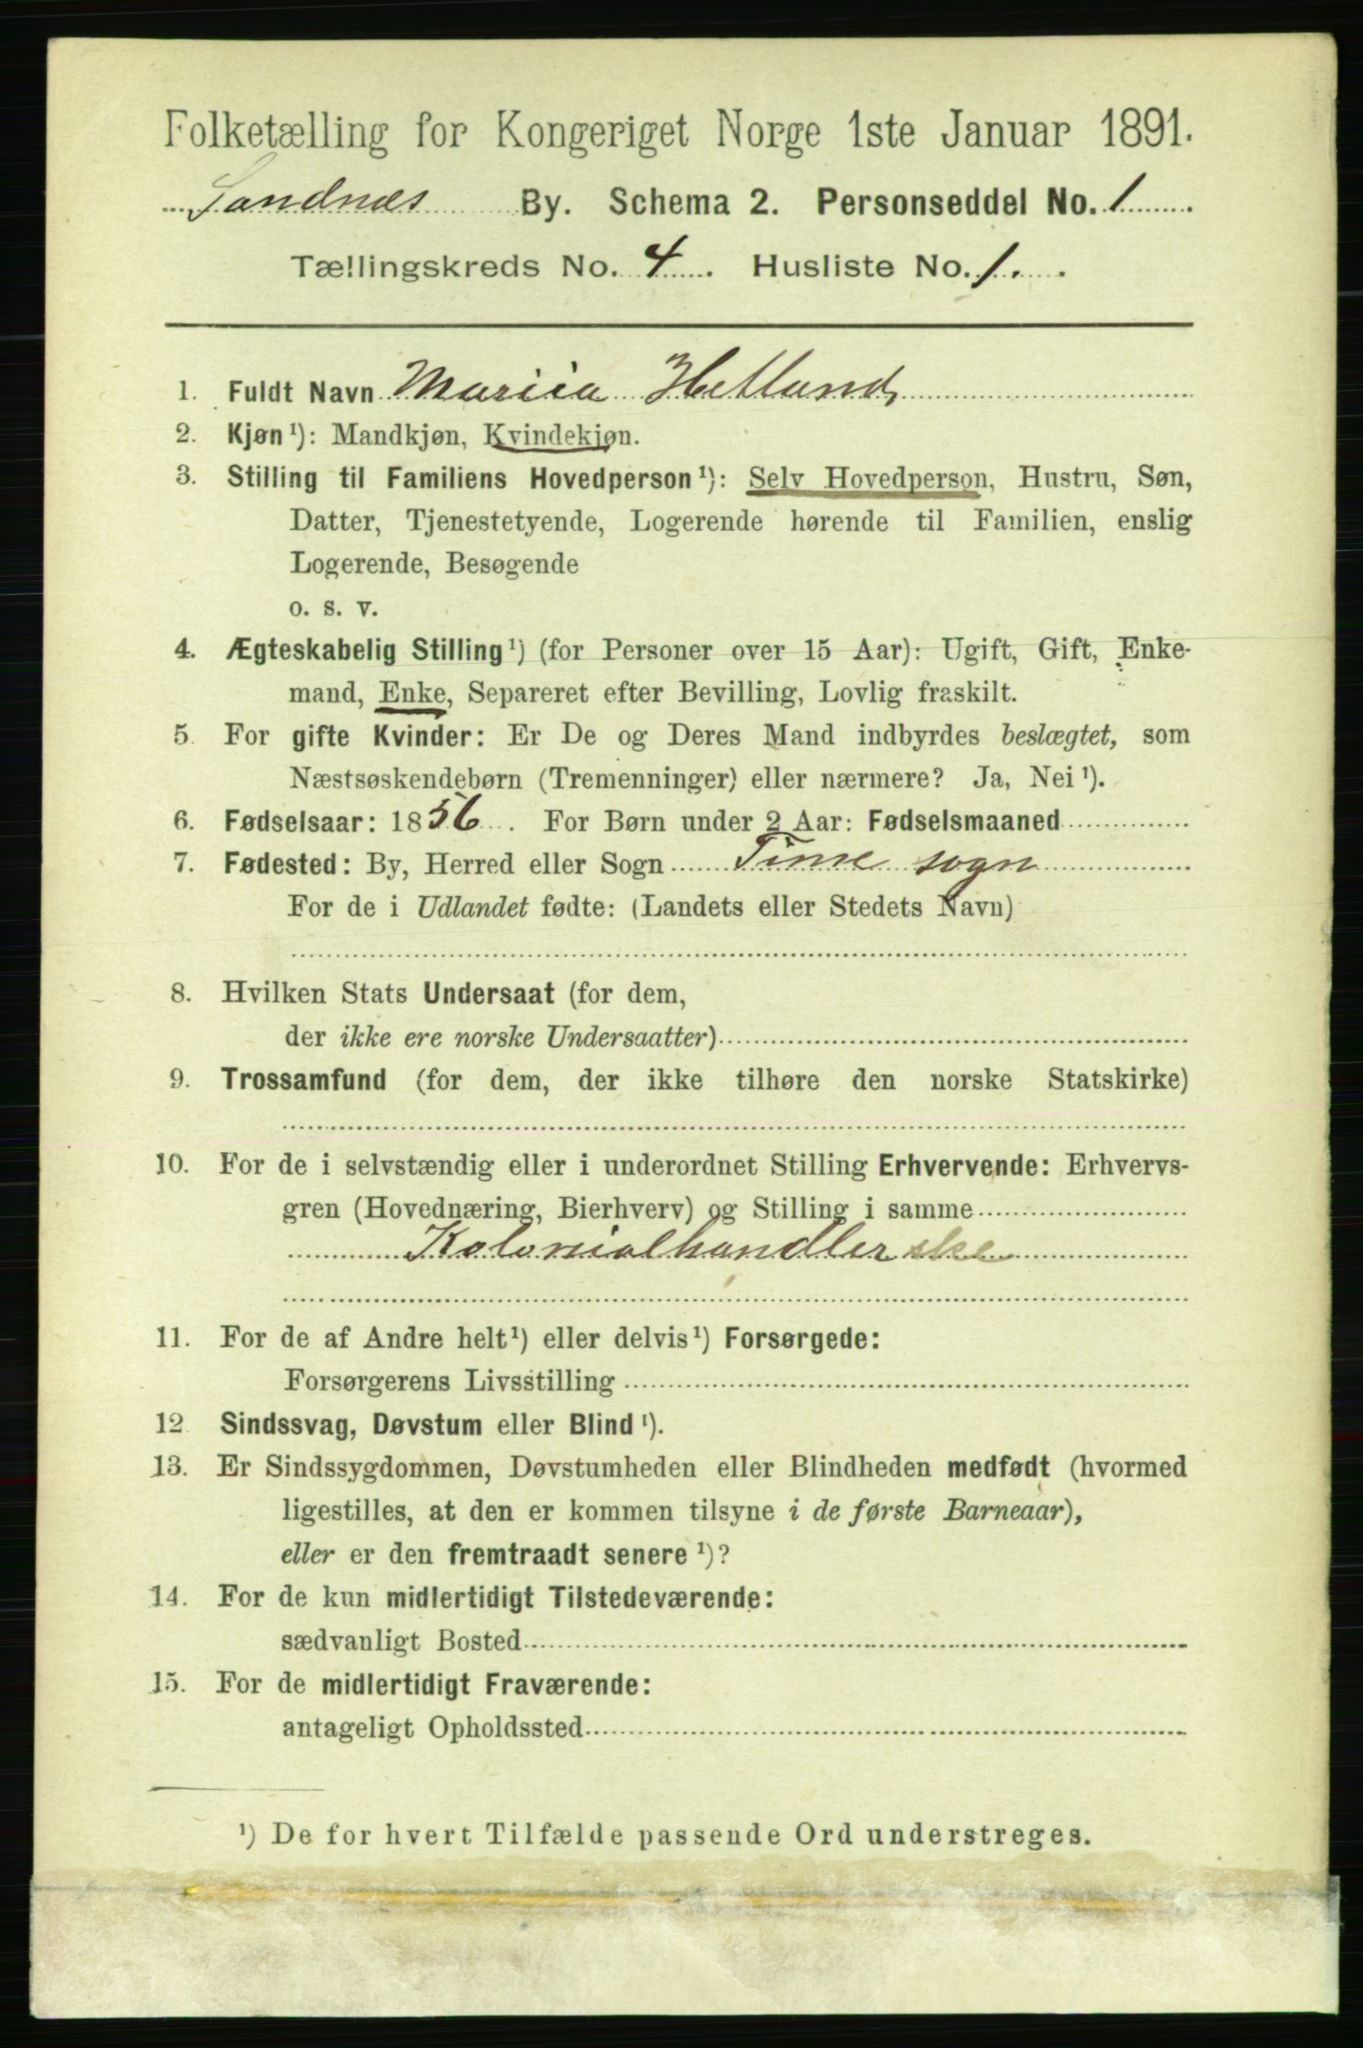 Folketælling for Kongeriget Norge 1ste Januar 1891.
Sandnæs By. Schema 2. Personseddel No. 1
Tællingskreds No. 4. Husliste No. 1.
1. Fuldt Navn Mariia Hetland,
2. Kjøn ¹): Mandkjøn, Kvindekjøn.
3. Stilling til Familiens Hovedperson ¹): Selv Hovedperson, Hustru, Søn,
Datter, Tjenestetyende, Logerende hørende til Familien, enslig
Logerende, Besøgende
o. s. v.
4. Ægteskabelig Stilling ¹) (for Personer over 15 Aar): Ugift, Gift, Enke-
mand, Enke, Separeret efter Bevilling, Lovlig fraskilt.
5. For gifte Kvinder: Er De og Deres Mand indbyrdes beslægtet, som
Næstsøskendebørn (Tremenninger) eller nærmere? Ja, Nei ¹).
6. Fødselsaar: 1856. For Børn under 2 Aar: Fødselsmaaned
7. Fødested: By, Herred eller Sogn Time sogn
For de i Udlandet fødte: (Landets eller Stedets Navn)
8. Hvilken Stats Undersaat (for dem,
der ikke ere norske Undersaatter)
9. Trossamfund (for dem, der ikke tilhøre den norske Statskirke)
10. For de i selvstændig eller i underordnet Stilling Erhvervende: Erhvervs-
gren (Hovednæring, Bierhverv) og Stilling i samme
Kolonialhandlerske
11. For de af Andre helt ¹) eller delvis ¹) Forsørgede:
Forsørgerens Livsstilling
12. Sindssvag, Døvstum eller Blind ¹).
13. Er Sindssygdommen, Døvstumheden eller Blindheden medfødt (hvormed
ligestilles, at den er kommen tilsyne i de første Barneaar),
eller er den fremtraadt senere ¹)?
14. For de kun midlertidigt Tilstedeværende:
sædvanligt Bosted
15. For de midlertidigt Fraværende:
antageligt Opholdssted
¹) De for hvert Tilfælde passende Ord understreges.